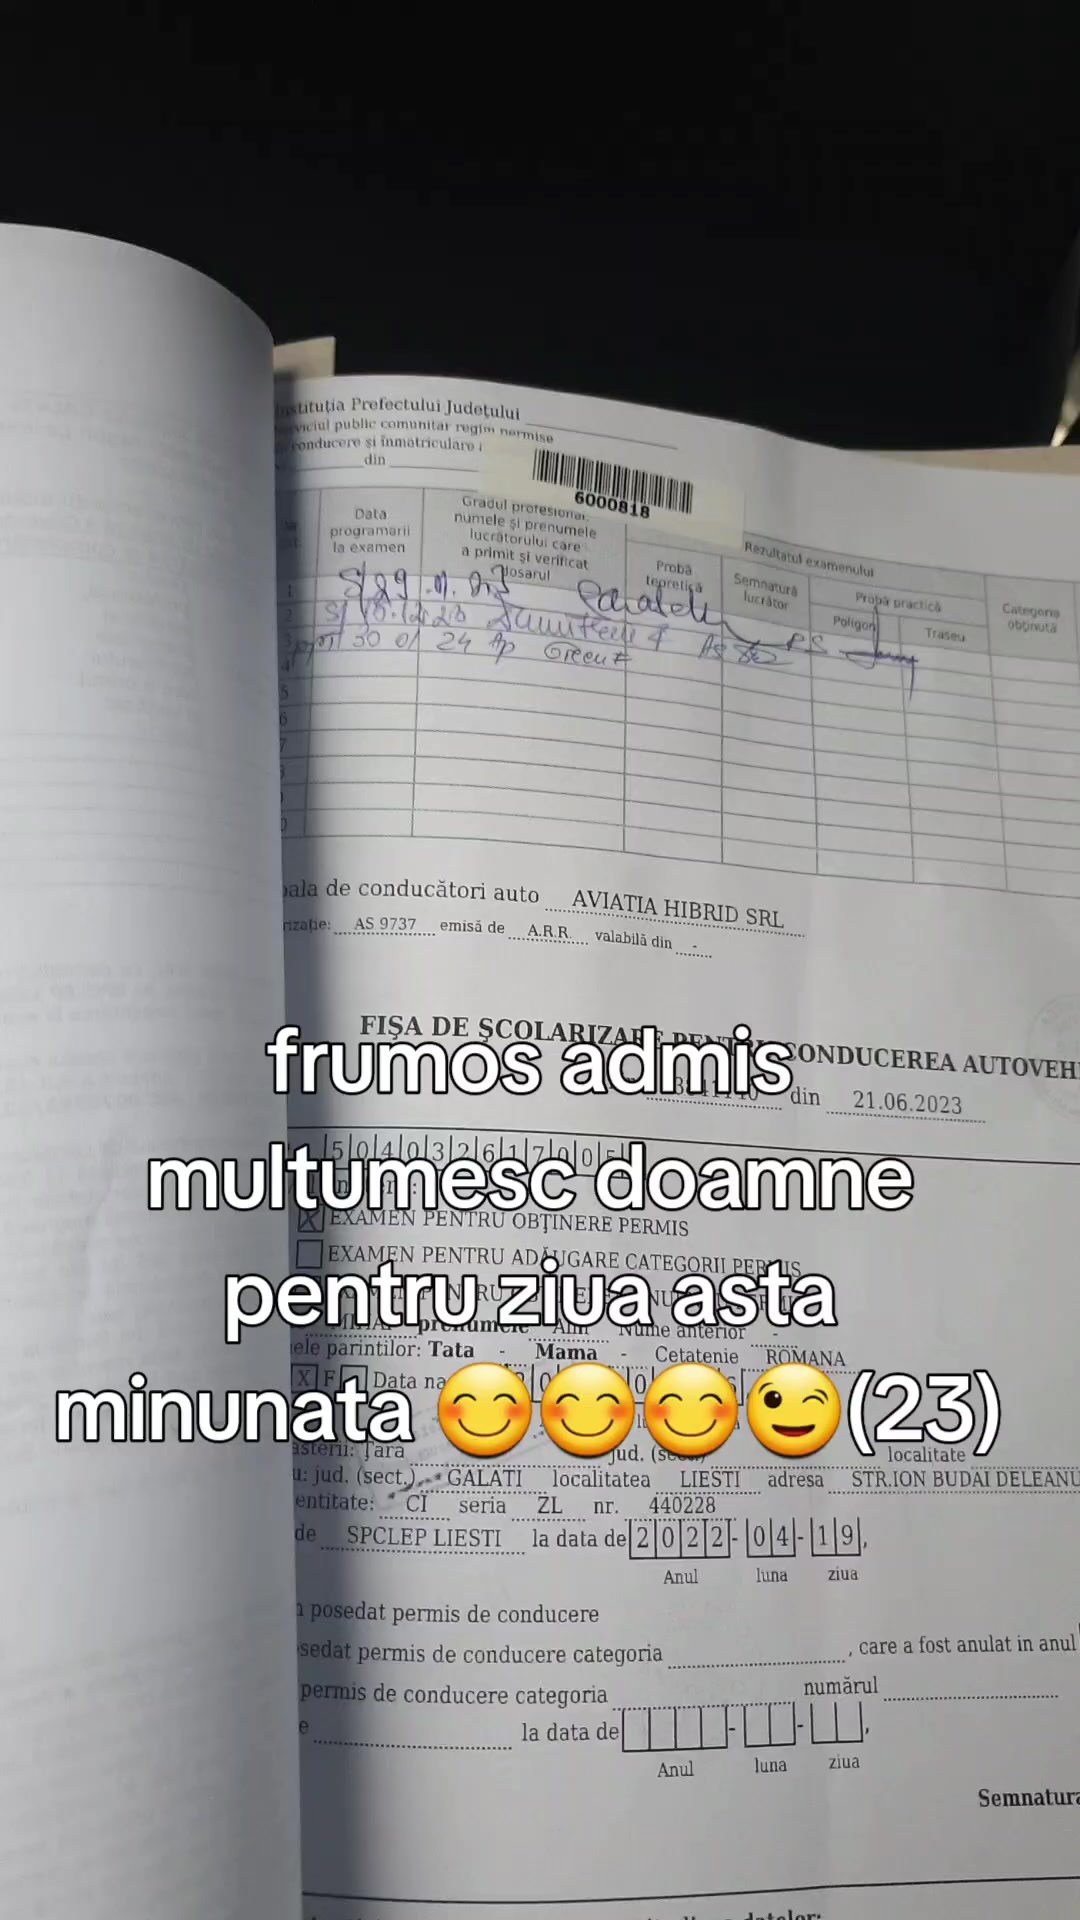 Instituția Prefectului Județului
serviciul public comunitar regim permise
conducere și înmatriculare
din
6000818
Data programarii la examen
Gradul profesional, numele și prenumele lucrătorului care a primit și verificat dosarul
Rezultatul examenului
Probă teoretică
Semnatură lucrător
Probă practică
Poligon
Traseu
Categoria obținută
1
2
30 01 24
3
4
5
6
7
oala de conducători auto AVIATIA HIBRID SRL
rizație: AS 9737 emisă de A.R.R. valabilă din -
FIȘA DE ȘCOLARIZARE PENTRU CONDUCEREA AUTOVEH
din 21.06.2023
frumos admis
multumesc doamne
pentru ziua asta
minunata 😊😊😊😉(23)
X EXAMEN PENTRU OBȚINERE PERMIS
EXAMEN PENTRU ADĂUGARE CATEGORII PERMIS
prenumele Nume anterior -
ele parintilor: Tata - Mama - Cetatenie ROMANA
X F Data na
Țara jud. localitate
u: jud. (sect.) GALATI localitatea LIESTI adresa STR.ION BUDAI DELEANU
entitate: CI seria ZL nr. 440228
de SPCLEP LIESTI la data de 2022-04-19,
Anul luna ziua
posedat permis de conducere
sedat permis de conducere categoria , care a fost anulat in anul
permis de conducere categoria numărul
e la data de
Anul luna ziua
Semnatura